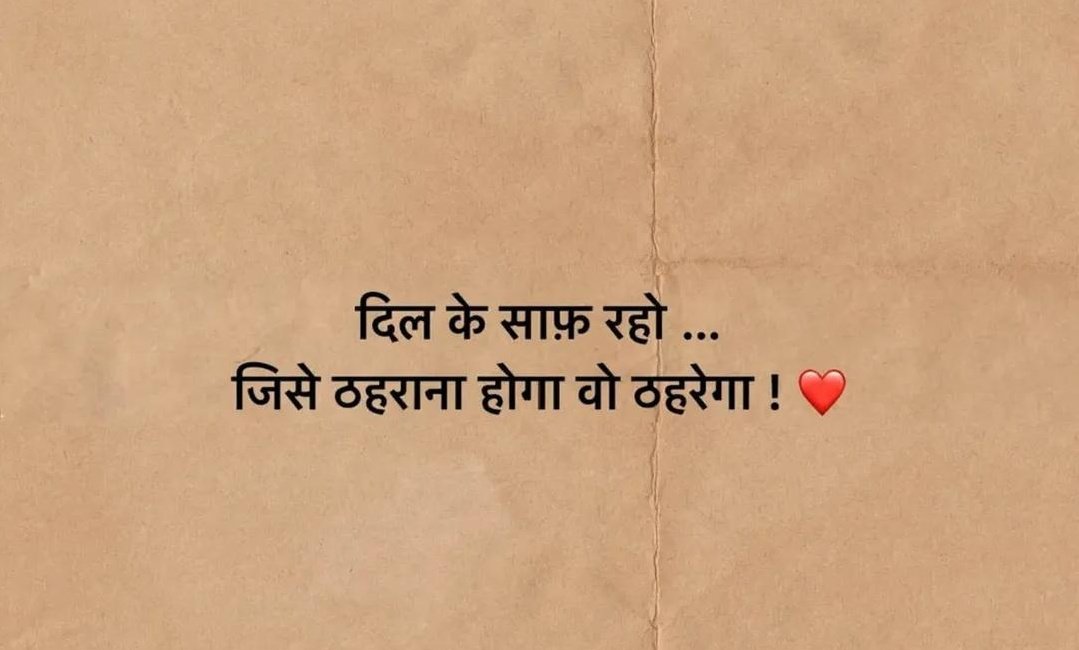 दिल के साफ़ रहो ...
जिसे ठहराना होगा वो ठहरेगा ! ❤️